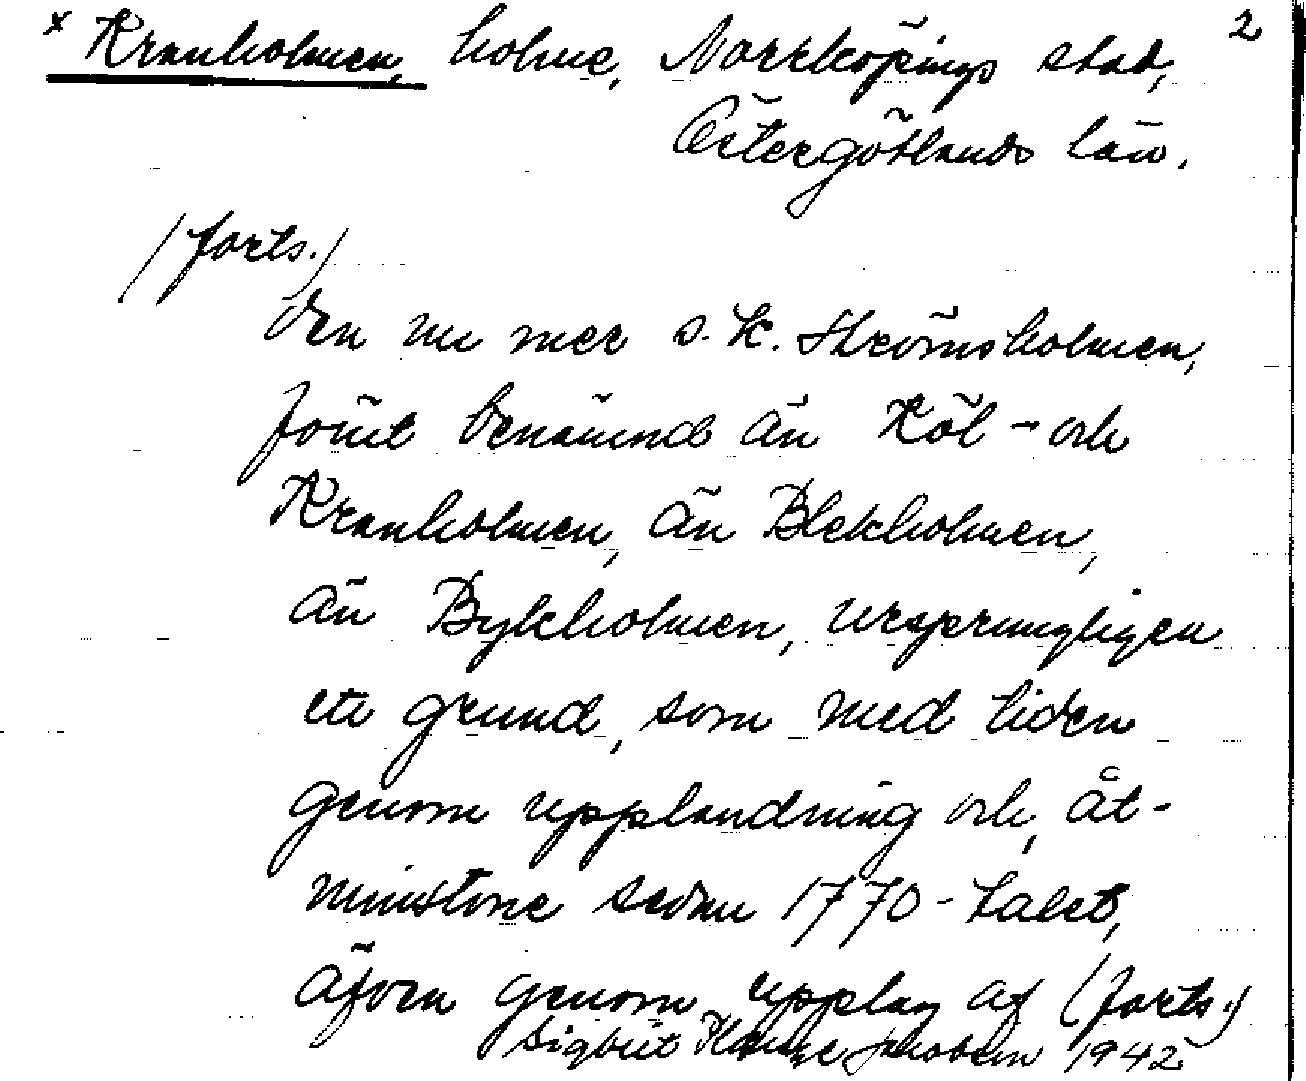 x Kranholmen, holme, Norrköpings stad, 2
Östergötlands län.
/forts./
den nu mer s.k. Strömsholmen,
förut benämnd än Köl- och
Kranholmen, än Blekholmen,
än Bykholmen, ursprungligen
ett grund, som med tiden
genom upplandning och, åt-
minstone sedan 1770-talet,
äfven genom upplag af (forts.)
Sigbrit Jacobson 1942